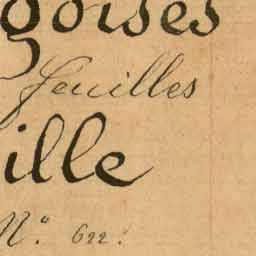 goises
feuilles
ille
N° 622.